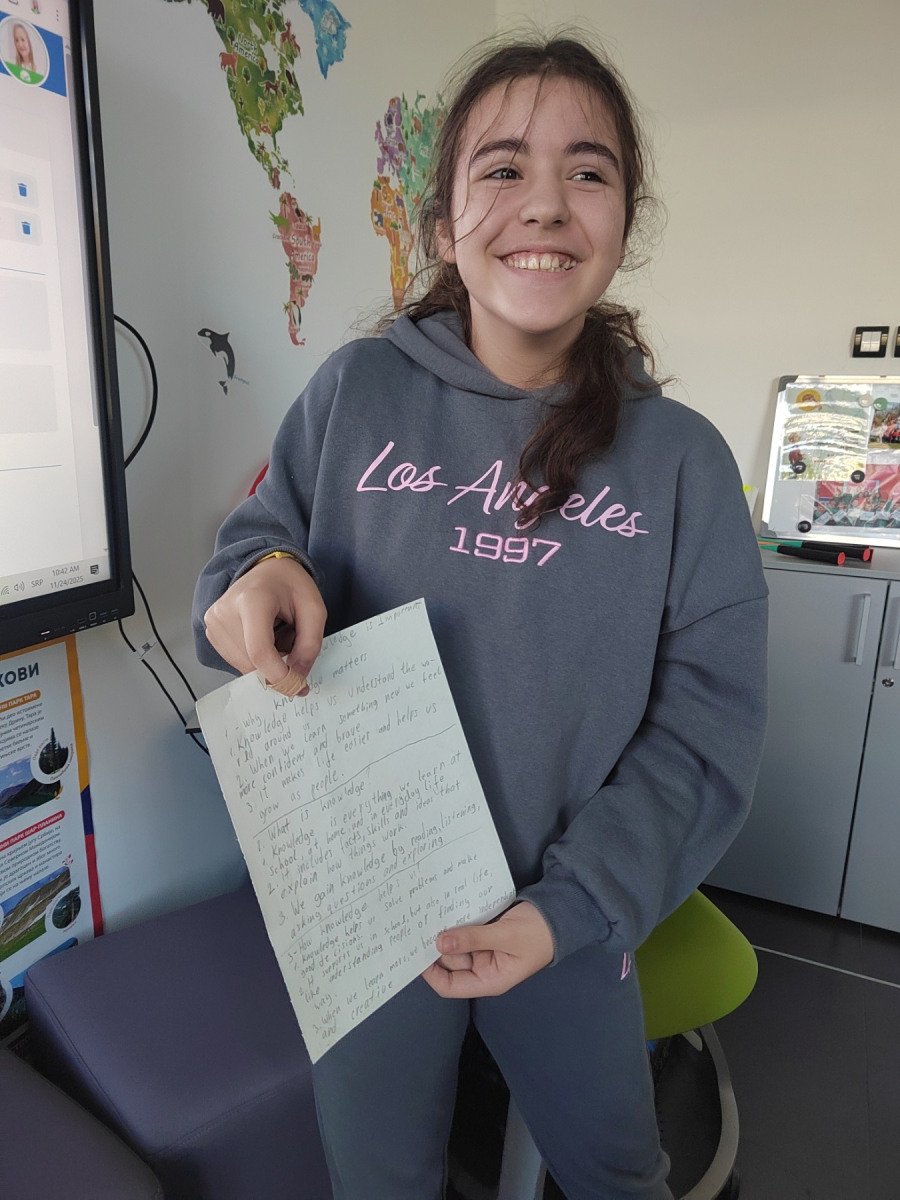 North America
South America
Los Angeles
1997
10:42 AM
SRP
11/24/2025
КОВИ
НИ ПАРК ТАРА
НИ ПАРК ШАР-ПЛАНИНА
wledge is Important
1. Why knowledge matters
1. Knowledge helps us understand the wo-
rld around us
2. When we learn something new we feel
more confident and brave
3. It makes life easier and helps us
grow as people.
2. What is knowledge?
1. Knowledge is everything we learn at
school, at home and in everyday life.
2. It includes facts, skills and ideas that
explain how things work
3. We gain knowledge by reading, listening,
asking questions and exploring.
3. How knowledge helps us
1. Knowledge helps us solve problems and make
good decisions.
2. It supports us in school, but also in real life,
like understanding people or finding our
way.
3. When we learn more, we become more independent
and creative